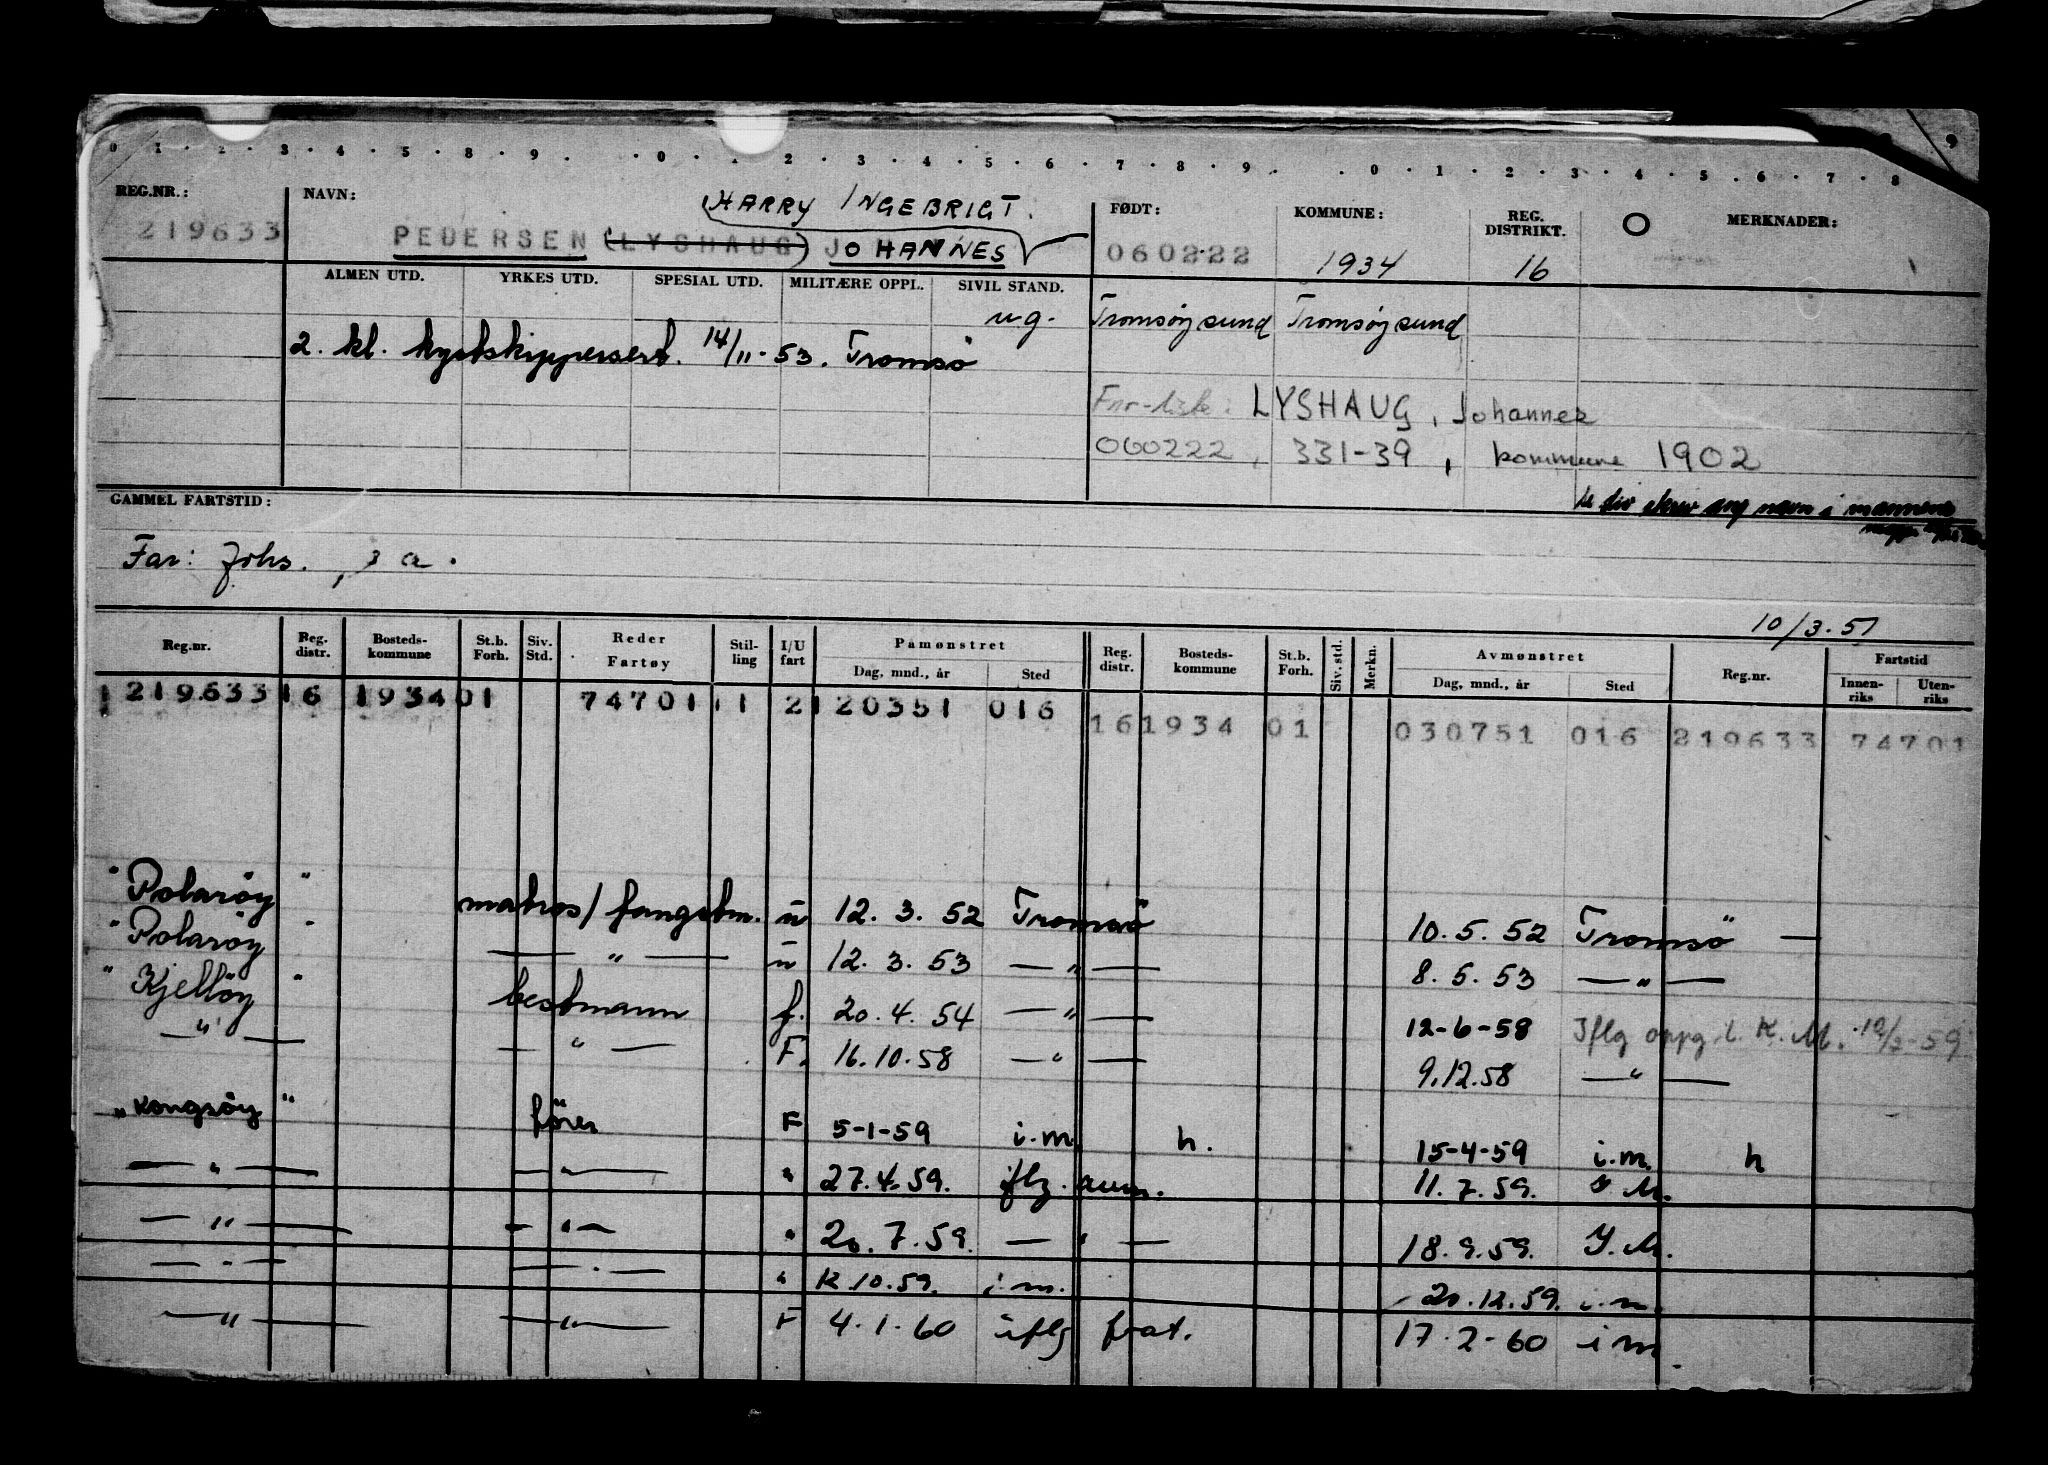 0 1 2 3 4 5 8 9 0 2 3 4 5 6 7 8 9 0 1 2 3 4 5 6 7 8 9
REG.NR.: NAVN: HARRY INGEBRIGT. FØDT: KOMMUNE: REG. DISTRIKT. O MERKNADER:
219633 PEDERSEN (LYSHAUG) JOHANNES 060222 1934 16
ALMEN UTD. YRKES UTD. SPESIAL UTD. MILITÆRE OPPL. SIVIL STAND.
ug. Tromsøysund Tromsøysund
2. kl. kystskippersert. 14/11-53. Tromsö
Fnr-liste: LYSHAUG, Johannes
060222, 331-39, kommune 1902
GAMMEL FARTSTID: navn i
Far: Johs., s a.
10/3.51
Reg.nr. Reg. distr. Bosteds-kommune St.b. Forh. Siv. Std. Reder Fartøy Stil-ling I/U fart Påmønstret Dag, mnd., år Sted Reg. distr. Bosteds-kommune St.b. Forh. Siv. std. Merkn. Avmønstret Dag, mnd., år Sted Reg.nr. Fartstid Innen-riks Uten-riks
219633 16 1934 01 74701 11 2 120351 016
16 1934 01 030751 016 219633 74701
"Polaröy" matros/fangstm. u 12. 3. 52 Tromsö 10. 5. 52 Tromsö —
"Polaröy" — " — u 12. 3. 53 — " — 8. 5. 53 — " —
"Kjellöy" bestmann f. 20. 4. 54 — " — 12-6-58 Iflg oppg. t. K. M. 10/2-59
— " — — " — F. 16.10.58 — " — 9.12.58 — " —
"Kongsöy" förer F 5-1-59 i.m. h. 15-4-59 i.m. h
— " — — " — " 27.4.59. iflg. aum. 11. 7. 59. I M.
— " — — " — " 20. 7. 59. — " — 18. 9. 59. I. M.
— " — — " — " 12.10.59. i.m. 20.12.59. i.m.
— " — — " — F 4-1-60 iflg frat. 17-2-60 i m.